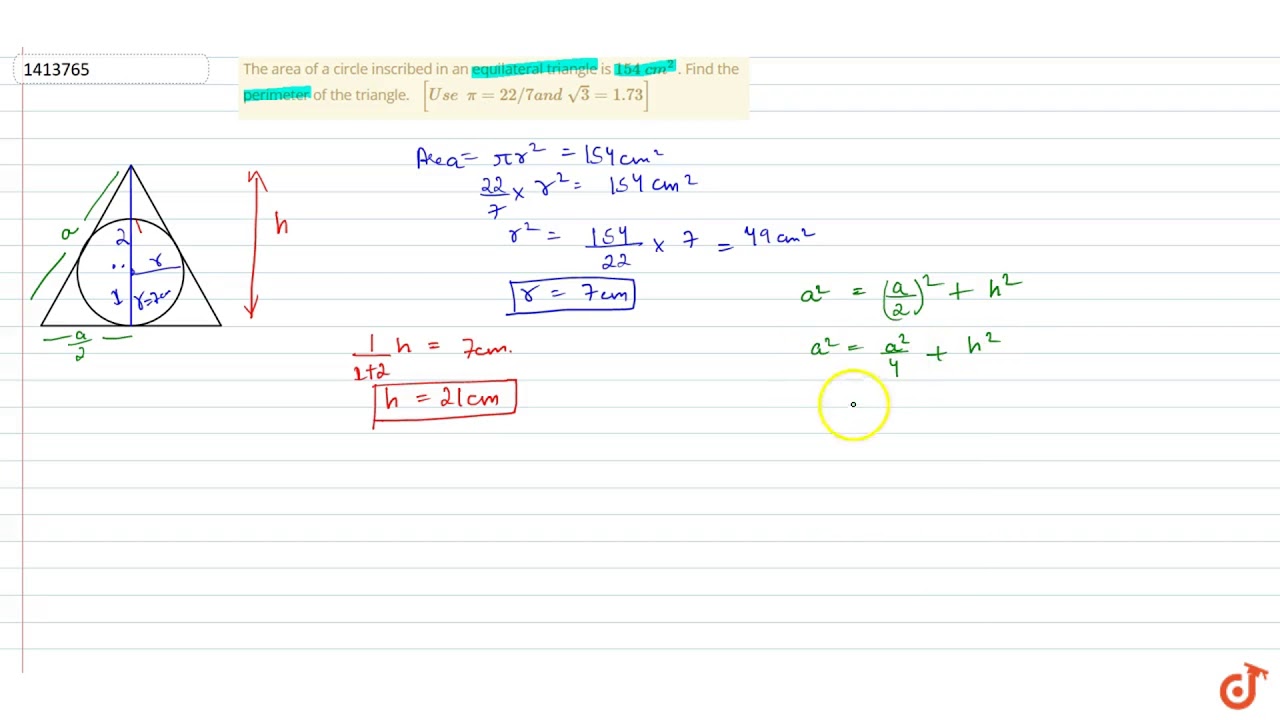 1413765
The area of a circle inscribed in an equilateral triangle is 154 cm². Find the
perimeter of the triangle. [Use π = 22/7and √3 = 1.73]
Area = πr² = 154 cm²
22/7 × r² = 154 cm²
r² = 154/22 × 7 = 49 cm²
r = 7cm
a
2
r
1
r=7cm
a/2
h
1/1+2 h = 7cm.
h = 21cm
a² = (a/2)² + h²
a² = a²/4 + h²